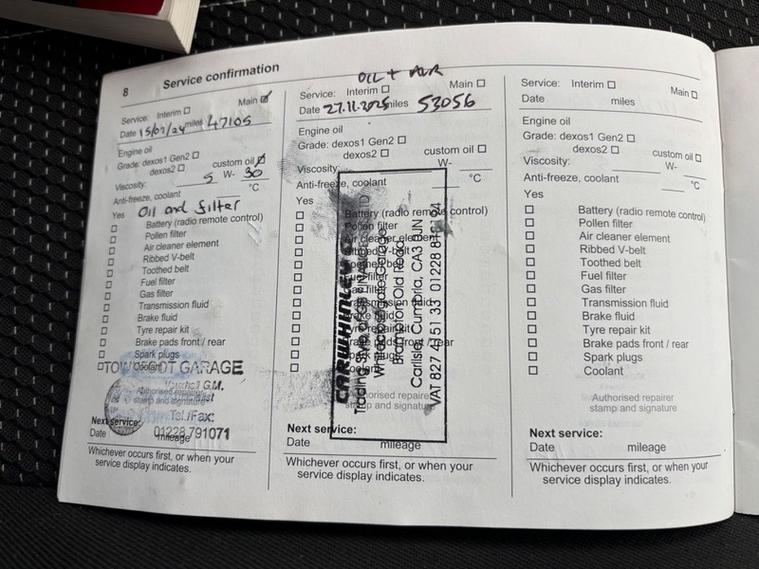 8 Service confirmation
Service: Interim Main
Date 15/02/24 miles 47105
Engine oil
Grade: dexos1 Gen2
dexos2 custom oil
Viscosity: 5 W- 30
Anti-freeze, coolant °C
Yes Oil and filter
Battery (radio remote control)
Pollen filter
Air cleaner element
Ribbed V-belt
Toothed belt
Fuel filter
Gas filter
Transmission fluid
Brake fluid
Tyre repair kit
Brake pads front / rear
Spark plugs
Coolant
GARAGE
Vauxhall G.M.
Authorised repairer
stamp and signature
Tel./Fax:
01228 791071
Next service:
Date mileage
Whichever occurs first, or when your
service display indicates.
OIL + AIR
Service: Interim Main
Date 27.11.2025 miles 53056
Engine oil
Grade: dexos1 Gen2
dexos2 custom oil
Viscosity: W-
Anti-freeze, coolant °C
Yes
Battery (radio remote control)
Pollen filter
Air cleaner element
Ribbed V-belt
Toothed belt
Fuel filter
Gas filter
Transmission fluid
Brake fluid
Tyre repair kit
Brake pads front / rear
Spark plugs
Coolant
CARWHINLEY
Brampton Old Road
Carlisle, Cumbria, CA3
VAT 827 01228
Authorised repairer
stamp and signature
Next service:
Date mileage
Whichever occurs first, or when your
service display indicates.
Service: Interim Main
Date miles
Engine oil
Grade: dexos1 Gen2
dexos2 custom oil
Viscosity: W-
Anti-freeze, coolant °C
Yes
Battery (radio remote control)
Pollen filter
Air cleaner element
Ribbed V-belt
Toothed belt
Fuel filter
Gas filter
Transmission fluid
Brake fluid
Tyre repair kit
Brake pads front / rear
Spark plugs
Coolant
Authorised repairer
stamp and signature
Next service:
Date mileage
Whichever occurs first, or when your
service display indicates.